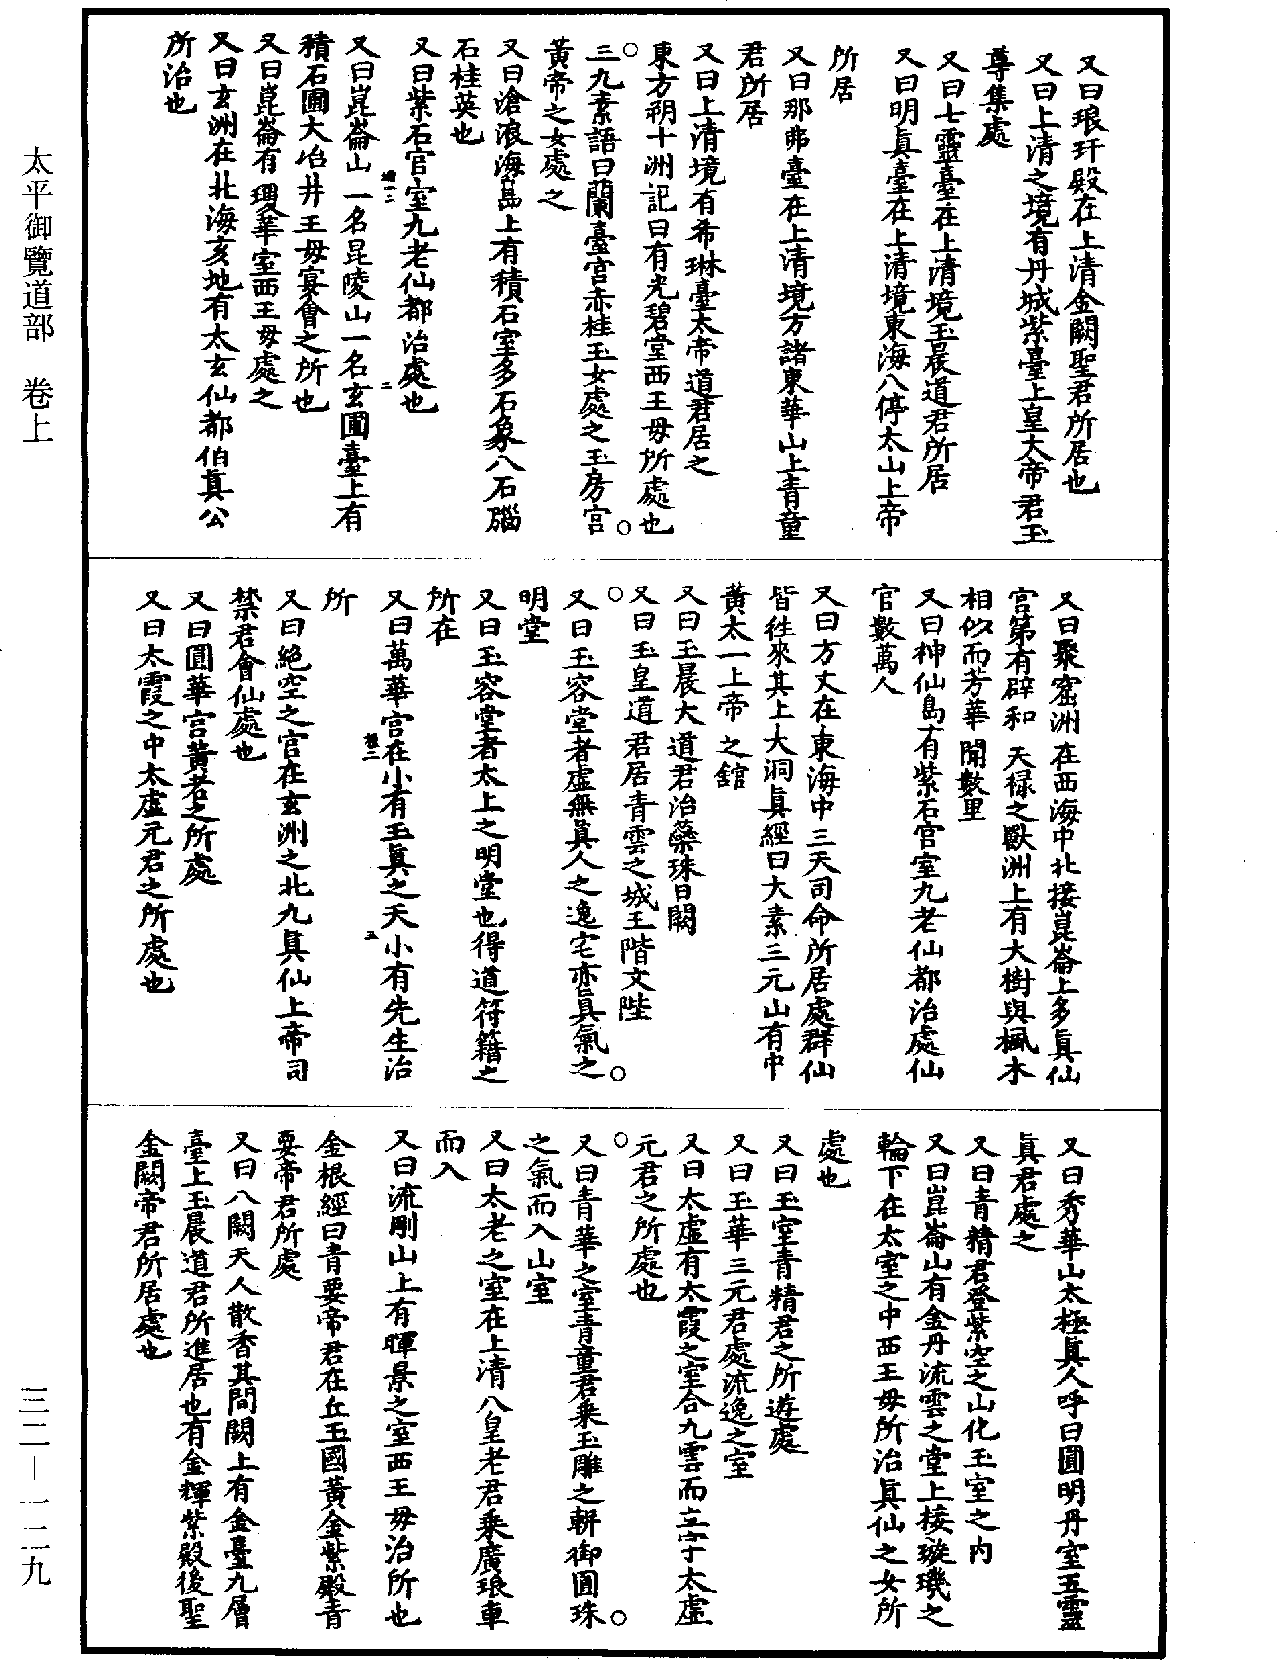 又曰琅玕殿在上清金闕聖君所居也
又曰上清之境有丹城紫臺上皇大帝君玉
尊集處
又曰七靈臺在上清境玉晨道君所居
又曰明真臺在上清境東海八停太山上帝
所居
又曰那弗臺在上清境方諸東華山上青童
君所居
又曰上清境有希琳臺太帝道君居之
東方朔十洲記曰有光碧堂西王母所處也
三九素語曰蘭臺宮赤桂玉女處之玉房宮
黃帝之女處之
又曰滄浪海島上有積石室多石象八石腦
石桂英也
又曰紫石宮室九老仙都治處也
又曰崑崙山一名昆陵山一名玄圃臺上有
積石圃大冶井王母宴會之所也
又曰崑崙有瓊華室西王母處之
又曰玄洲在北海亥地有太玄仙都伯真公
所治也
又曰聚窟洲在西海中北接崑崙上多真仙
宮第有辟和天祿之獸洲上有大樹與楓木
相似而芳華聞數里
又曰神仙島有紫石宮室九老仙都治處仙
官數萬人
又曰方丈在東海中三天司命所居處群仙
皆往來其上大洞真經曰大素三元山有中
黃太一上帝之館
又曰玉晨大道君治蘂珠日闕
又曰玉皇道君居青雲之城玉階文陛
又曰玉容堂者虛無真人之逸宅亦真氣之
明堂
又曰玉容堂者太上之明堂也得道符籍之
所在
又曰萬華宮在小有玉真之天小有先生治
所
又曰絕空之宮在玄洲之北九真仙上帝司
禁君會仙處也
又曰圓華宮黃老之所處
又曰太霞之中太虛元君之所處也
又曰秀華山太極真人呼曰圓明丹室五靈
真君處之
又曰青精君登紫空之山化玉室之內
又曰崑崙山有金丹流雲之堂上接璇璣之
輪下在太室之中西王母所治真仙之女所
處也
又曰玉室青精君之所遊處
又曰玉華三元君處流逸之室
又曰太虛有太霞之室合九雲而立宇太虛
元君之所處也
又曰青華之室青童君乘玉雕之軿御圓珠
之氣而入山室
又曰太老之室在上清八皇老君乘廣琅車
而入
又曰流剛山上有暉景之室西王母治所也
金根經曰青要帝君在丘玉國黃金紫殿青
要帝君所處
又曰八闕天人散香其間闕上有金臺九層
臺上玉晨道君所進居也有金輝紫殿後聖
金闕帝君所居處也
太平御覽道部 卷上
三二—一二九